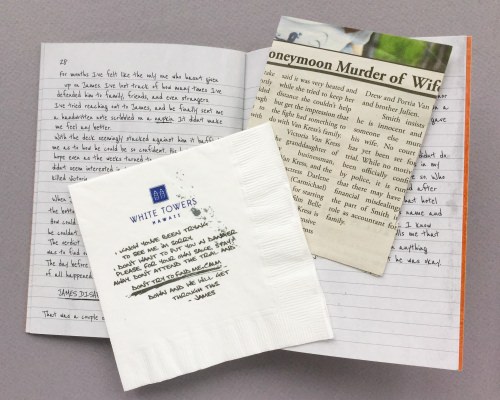 28
For months I've felt like the only one who hasn't given
up on James. I've lost track of how many times I've
defended him to family, friends, and even strangers.
I've tried reaching out to James, and he finally sent me
a handwritten note scribbled on a napkin. It didn't make
me feel any better.
With the deck seemingly stacked against him it baffl
me as to how he could be so confident. He
hope even as the weeks turned to
didn't seem interested
killed Victoria
When
the botto
God
could
The verdict
was to find
The day before
of all happened
JAMES DISA
That was a couple
oneymoon Murder of Wife
said it was very heated and
while she tried to keep her
distance she couldn't help
but get the impression that
the fight had something to
do with Van Kress's family.
Victoria Van Kress
granddaughter of
businessman,
Van Kress, and the
actress Darlene
(Carmichael)
for starring
film Belle
Kress is
family
Drew and Portia Van
and brother Julien.
Smith insists
he is innocent and
someone else mur
his wife. No court
has yet been set for
trial. While no motiv
been officially confir
by police, it is rum
that there may have
financial misdealing
the part of Smith w
as accountant for
didn't do.
in
who was
after
that hotel
name and
I know
is me that
anything
he was way.
WHITE TOWERS
HAWAII
I KNOW YOU'VE BEEN TRYING
TO SEE ME. I'M SORRY.
I DON'T WANT TO PUT YOU IN DANGER
PLEASE FOR YOUR OWN SAKE STAY
AWAY. DON'T ATTEND THE TRIAL AND
DON'T TRY TO FIND ME. CALM
DOWN AND WE WILL GET
THROUGH THIS
- JAMES